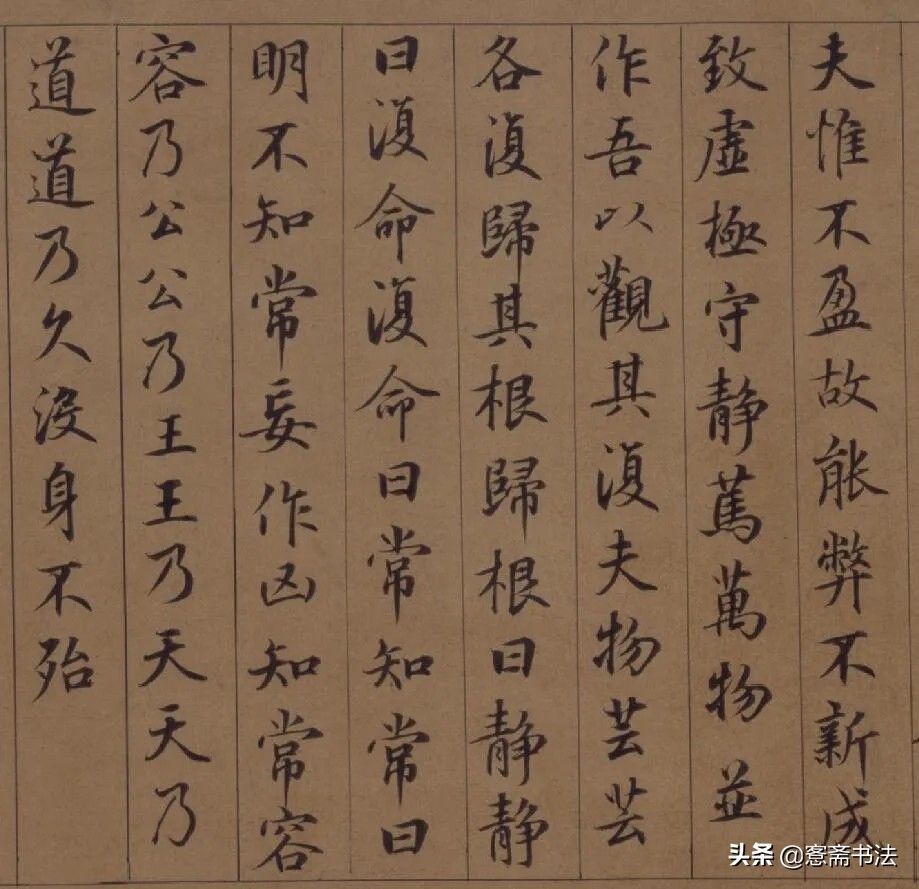 夫惟不盈故能弊不新成
致虛極守静篤萬物並
作吾以觀其復夫物芸芸
各復歸其根歸根曰静静
曰復命復命曰常知常曰
明不知常妄作凶知常容
容乃公公乃王王乃天天乃
道道乃久没身不殆
头条 @窓斋书法